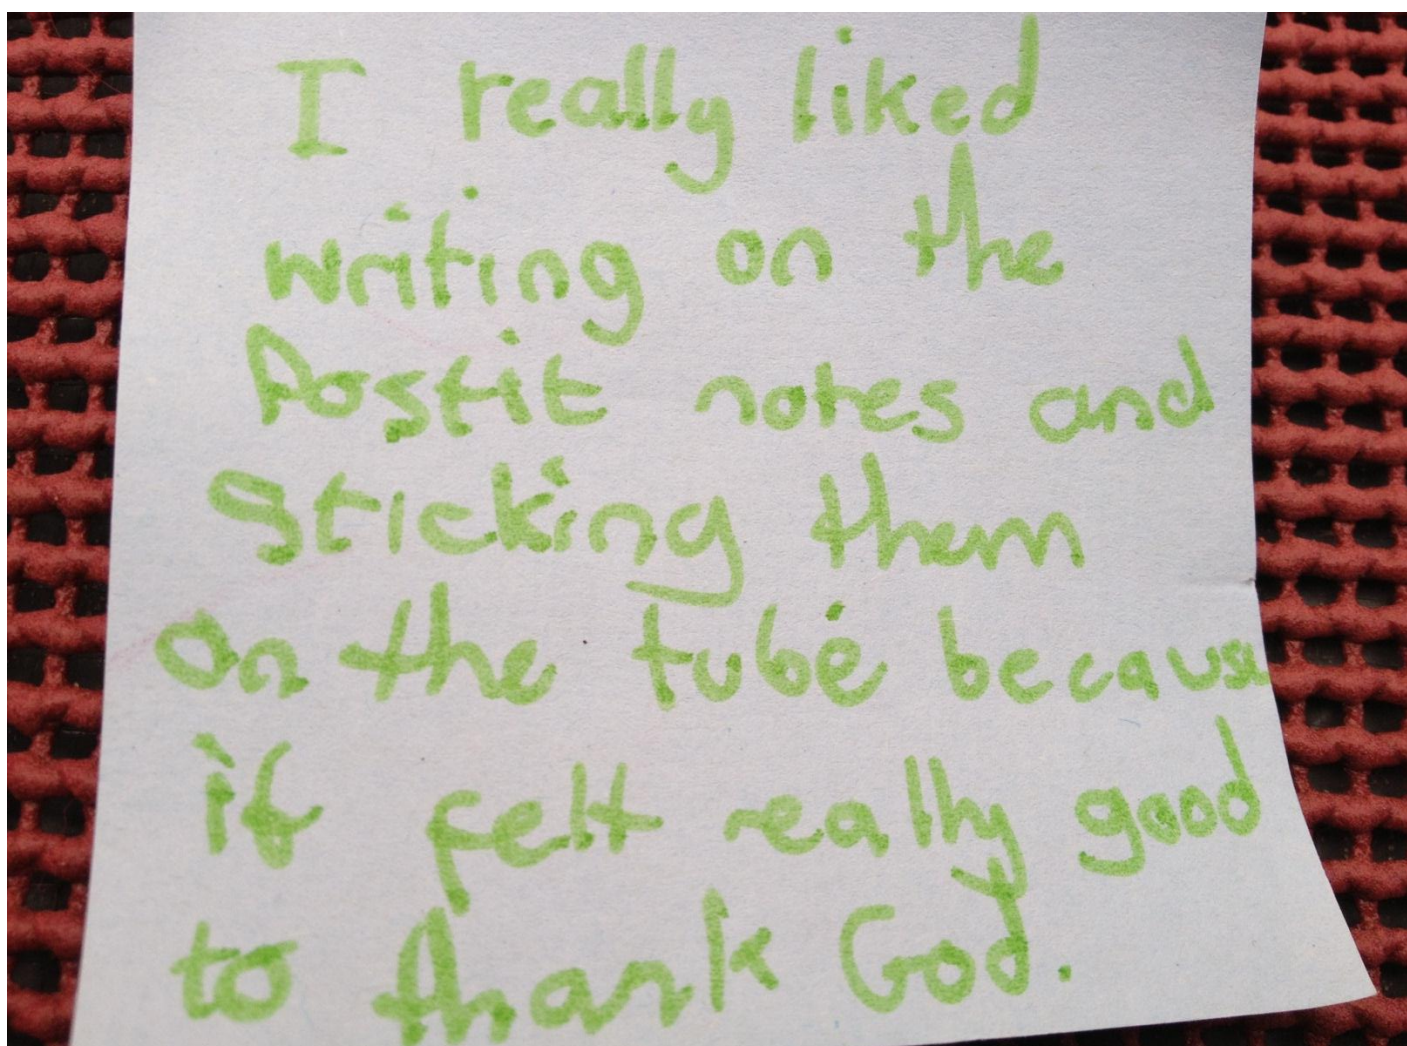 I really liked
writing on the
Postit notes and
sticking them
on the tube because
it felt really good
to thank God.